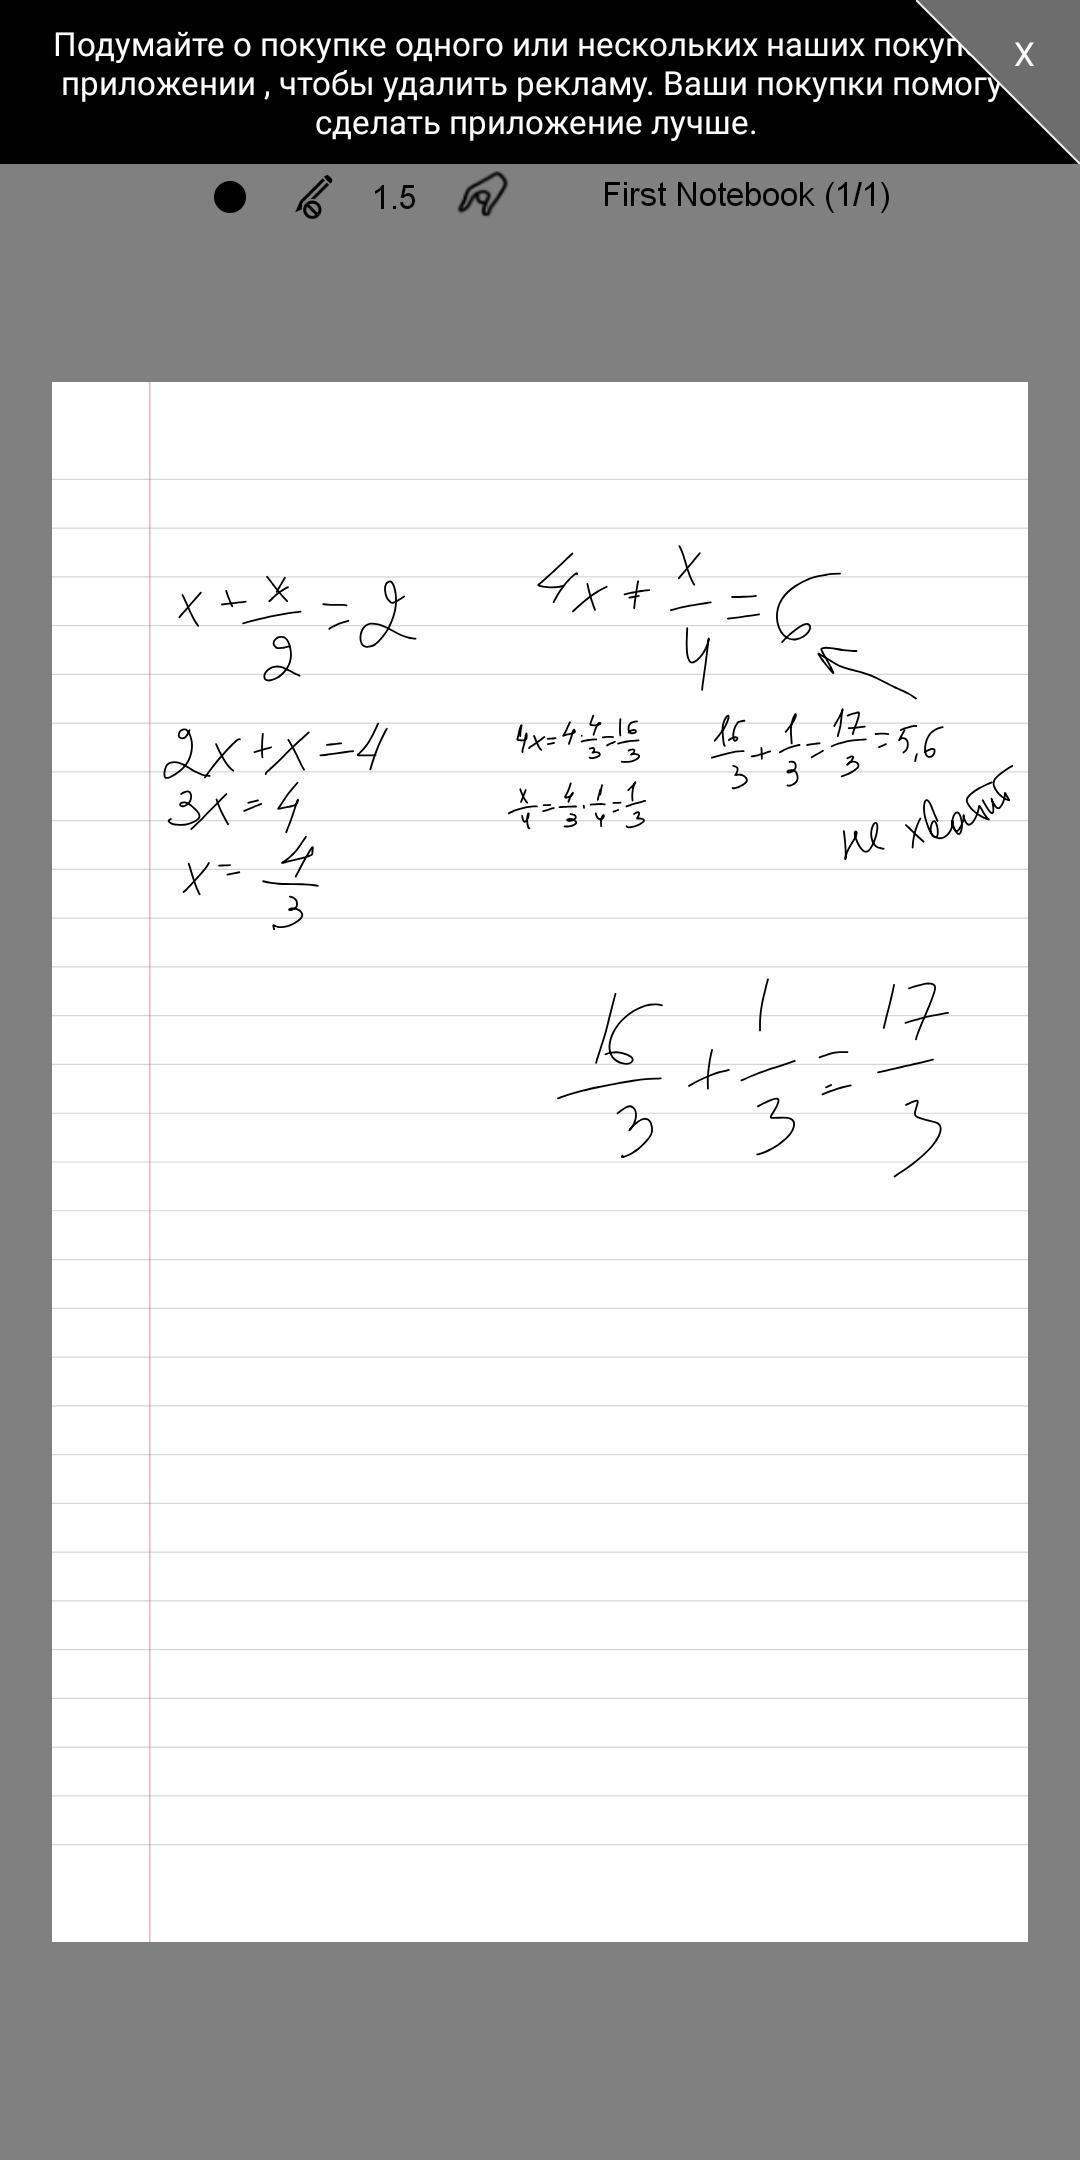 Подумайте о покупке одного или нескольких наших покуп
приложении , чтобы удалить рекламу. Ваши покупки помогу
сделать приложение лучше.
X
1.5
First Notebook (1/1)
x + x/2 = 2
4x + x/4 = 6
2x + x = 4
3x = 4
x = 4/3
4x = 4 · 4/3 = 16/3
x/4 = 4/3 · 1/4 = 1/3
16/3 + 1/3 = 17/3 = 5,6
не хватит
16/3 + 1/3 = 17/3